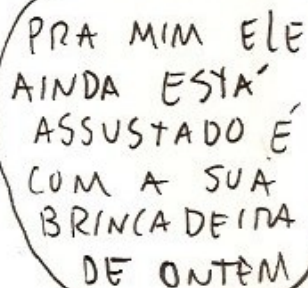 PRA MIM ELE
AINDA ESTÁ
ASSUSTADO É
COM A SUA
BRINCADEIRA
DE ONTEM